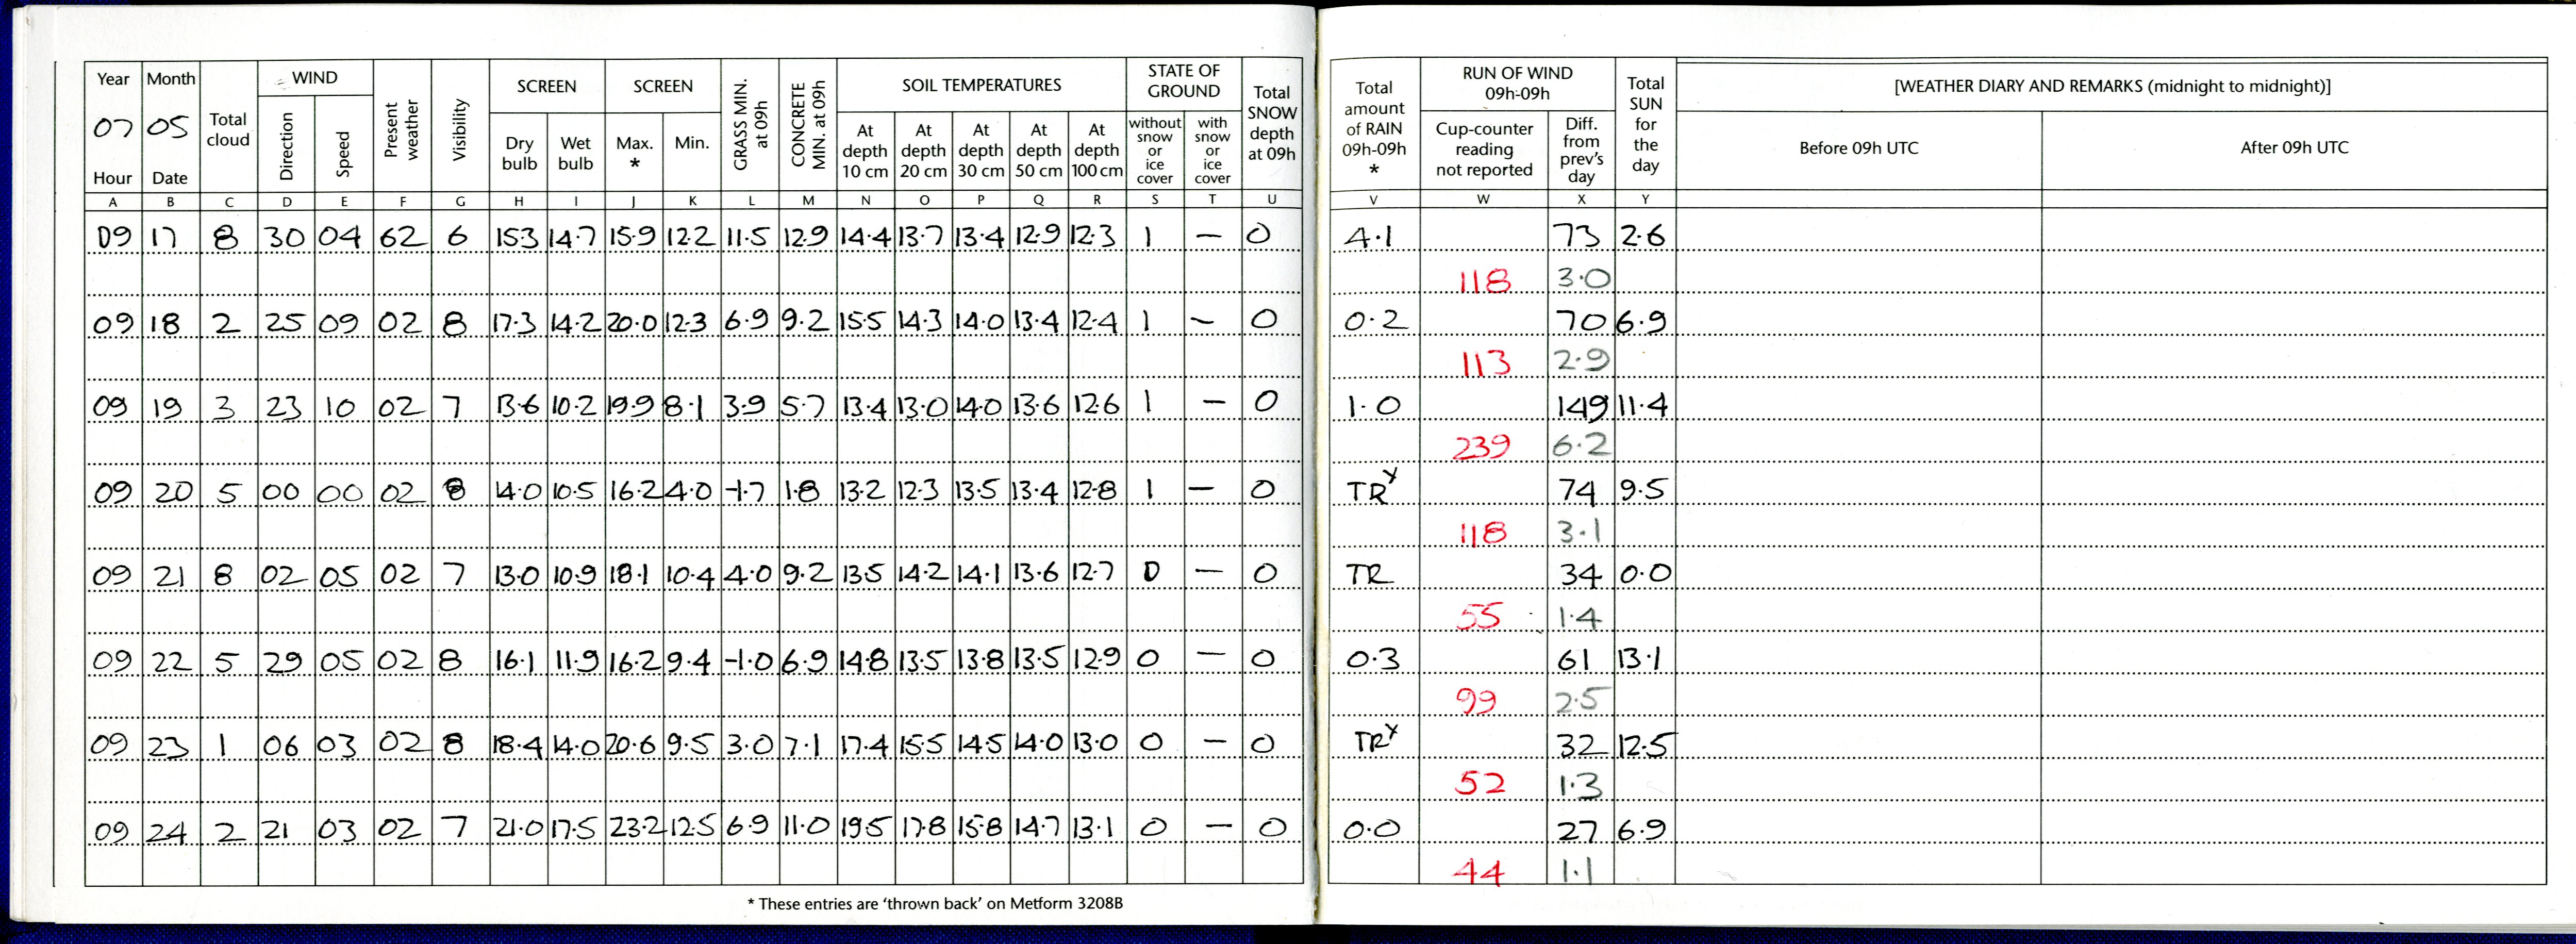 Year Month Total cloud WIND Present weather Visibility SCREEN SCREEN GRASS MIN. at 09h CONCRETE MIN. at 09h SOIL TEMPERATURES STATE OF GROUND Total SNOW depth at 09h Total amount of RAIN 09h-09h * RUN OF WIND 09h-09h Total SUN for the day [WEATHER DIARY AND REMARKS (midnight to midnight)]
07 05 Direction Speed Dry bulb Wet bulb Max. * Min. At depth 10 cm At depth 20 cm At depth 30 cm At depth 50 cm At depth 100 cm without snow or ice cover with snow or ice cover Cup-counter reading not reported Diff. from prev's day Before 09h UTC After 09h UTC
Hour Date
A B C D E F G H I J K L M N O P Q R S T U V W X Y
09 17 8 30 04 62 6 15.3 14.7 15.9 12.2 11.5 12.9 14.4 13.7 13.4 12.9 12.3 1 – 0 4.1 73 2.6
118 3.0
09 18 2 25 09 02 8 17.3 14.2 20.0 12.3 6.9 9.2 15.5 14.3 14.0 13.4 12.4 1 – 0 0.2 70 6.9
113 2.9
09 19 3 23 10 02 7 13.6 10.2 19.9 8.1 3.9 5.7 13.4 13.0 14.0 13.6 12.6 1 – 0 1.0 149 11.4
239 6.2
09 20 5 00 00 02 8 14.0 10.5 16.2 4.0 -1.7 1.8 13.2 12.3 13.5 13.4 12.8 1 – 0 TRx 74 9.5
118 3.1
09 21 8 02 05 02 7 13.0 10.9 18.1 10.4 4.0 9.2 13.5 14.2 14.1 13.6 12.7 0 – 0 TR 34 0.0
55 1.4
09 22 5 29 05 02 8 16.1 11.9 16.2 9.4 -1.0 6.9 14.8 13.5 13.8 13.5 12.9 0 – 0 0.3 61 13.1
99 2.5
09 23 1 06 03 02 8 18.4 14.0 20.6 9.5 3.0 7.1 17.4 15.5 14.5 14.0 13.0 0 – 0 TRx 32 12.5
52 1.3
09 24 2 21 03 02 7 21.0 17.5 23.2 12.5 6.9 11.0 19.5 17.8 15.8 14.7 13.1 0 – 0 0.0 27 6.9
44 1.1
* These entries are 'thrown back' on Metform 3208B